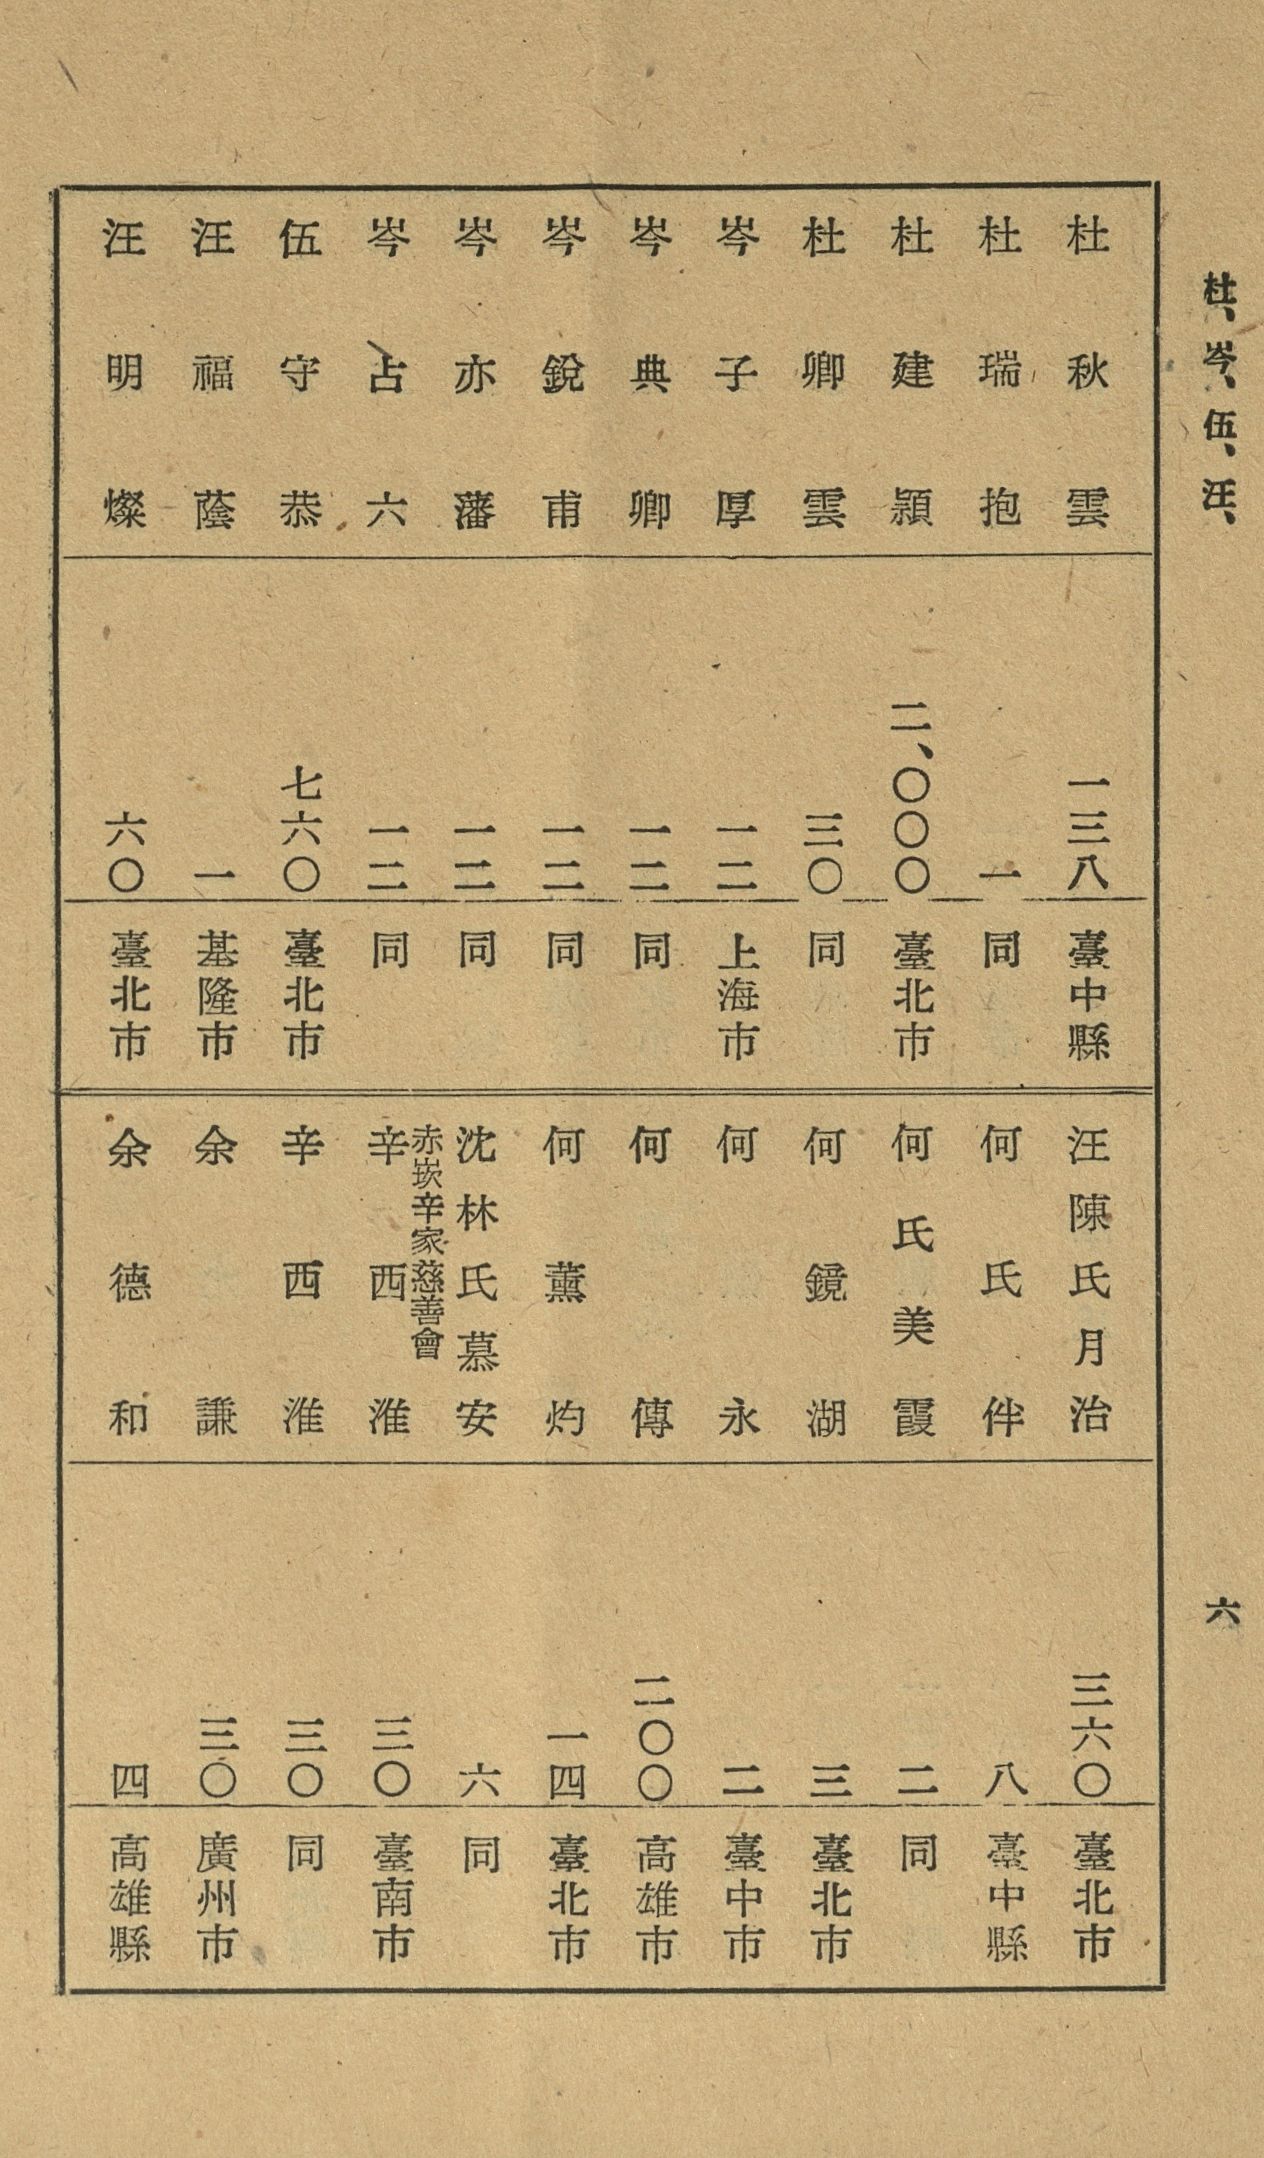 杜、岑、伍、汪、
六
杜秋雲 一三八 臺中縣
杜瑞抱 一 同
杜建潁 二、〇〇〇 臺北市
杜卿雲 三〇 同
岑子厚 一二 上海市
岑典卿 一二 同
岑銳甫 一二 同
岑亦藩 一二 同
岑占六 一二 同
伍守恭 七六〇 臺北市
汪福蔭 一 基隆市
汪明燦 六〇 臺北市
汪陳氏月治 三六〇 臺北市
何氏伴 八 臺中縣
何氏美霞 二 同
何鏡湖 三 臺北市
何永 二 臺中市
何傳 二〇〇 高雄市
何薰灼 一四 臺北市
沈林氏慕安 六 同
赤崁辛家慈善會
辛西淮 三〇 臺南市
辛西淮 三〇 同
余謙 三〇 廣州市
余德和 四 高雄縣